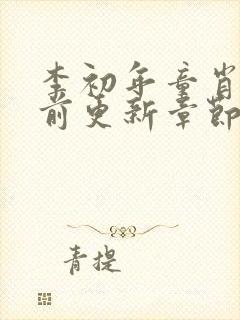 李初年童肖
前更新章節
青提